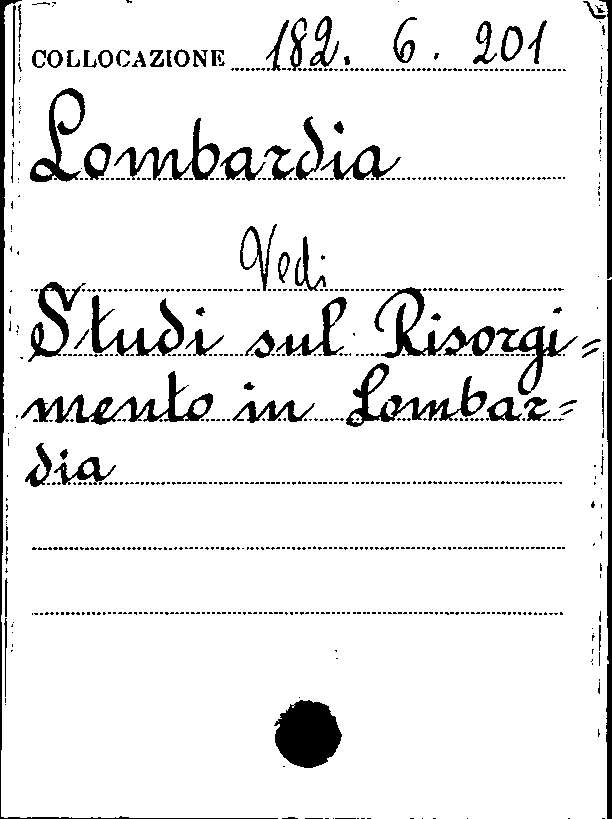 COLLOCAZIONE 182. 6. 201
Lombardia
Vedi
Studi sul Risorgi=
mento in Lombar=
dia